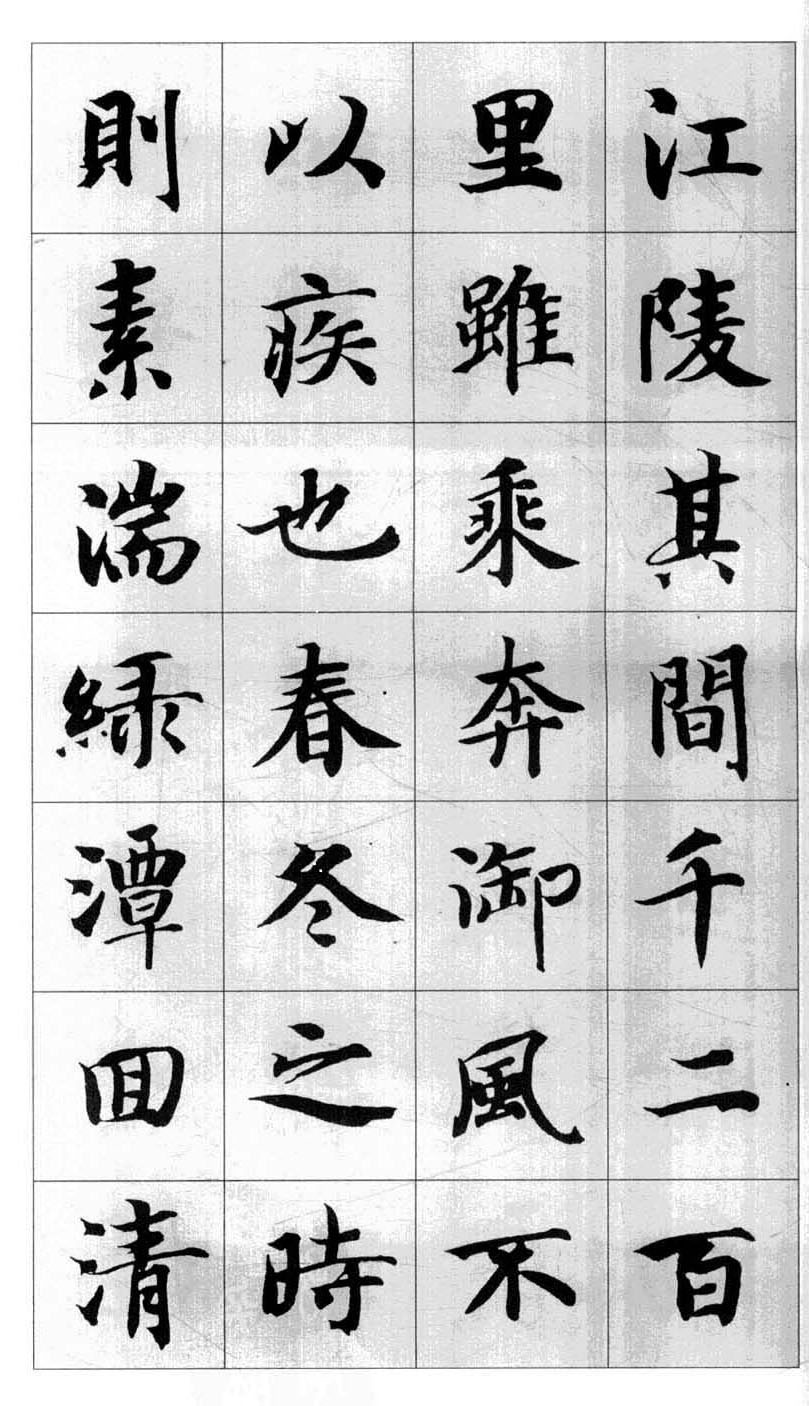 江陵其間千二百
里雖乘奔御風不
以疾也春冬之時
則素湍綠潭回清